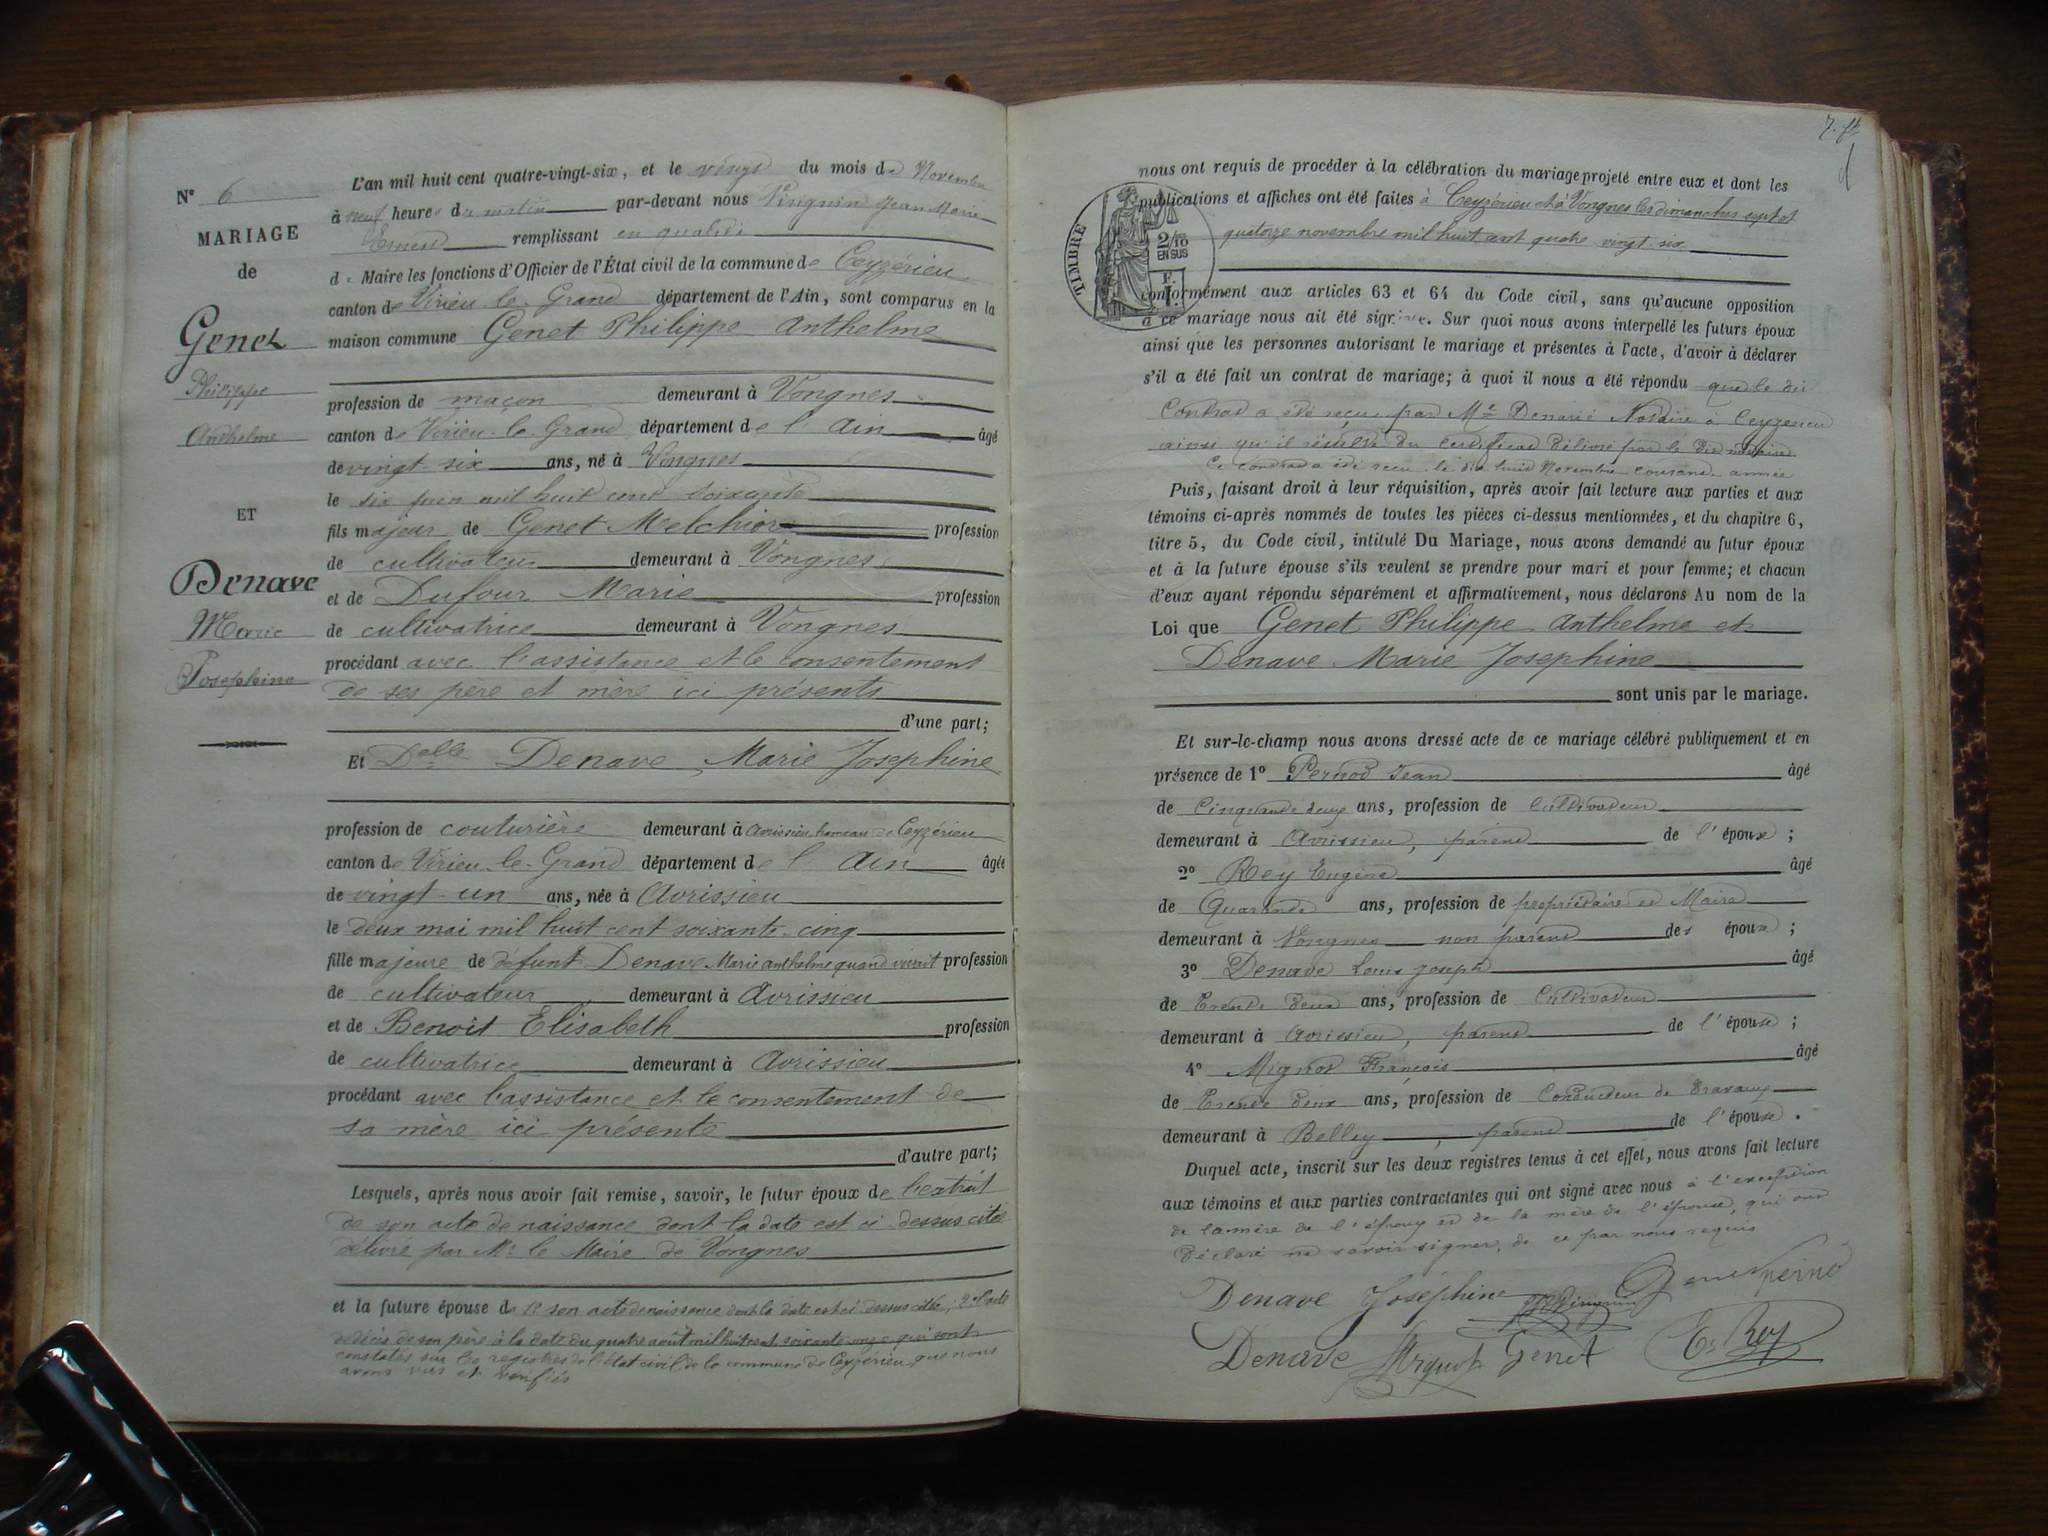 N° 6
MARIAGE
de
Genet
Philippe
Anthelme
ET
Denave
Marie
Josephine
L'an mil huit cent quatre-vingt-six, et le vingt du mois de Novembre
à neuf heures du matin par-devant nous Jean Marie
Ernest remplissant en qualité
de Maire les fonctions d'Officier de l'État civil de la commune de Ceyzérieu
canton de Virieu-le-Grand département de l'Ain, sont comparus en la
maison commune Genet Philippe Anthelme
profession de maçon demeurant à Vongnes
canton de Virieu-le-Grand département de l'Ain âgé
de vingt-six ans, né à Vongnes
le six juin mil huit cent soixante
fils majeur de Genet Melchior profession
de cultivateur demeurant à Vongnes
et de Dufour Marie profession
de cultivatrice demeurant à Vongnes
procédant avec l'assistance et le consentement
de ses père et mère ici présents
d'une part;
Et Delle Denave Marie Josephine
profession de couturière demeurant à Avrissieu, hameau de Ceyzérieu
canton de Virieu-le-Grand département de l'Ain âgée
de vingt-un ans, née à Avrissieu
le deux mai mil huit cent soixante-cinq
fille majeure de défunt Denave Marie anthelme quand vivait profession
de cultivateur demeurant à Avrissieu
et de Benoit Elisabeth profession
de cultivatrice demeurant à Avrissieu
procédant avec l'assistance et le consentement de
sa mère ici présente
d'autre part;
Lesquels, après nous avoir fait remise, savoir, le futur époux de l'extrait
de son acte de naissance dont la date est ci-dessus citée
délivré par Mr le Maire de Vongnes
et la future épouse de 1° son acte de naissance dont la date est ci dessus citée; 2° l'acte
de décès de son père à la date du quatre août mil huit cent soixante-onze qui sont
constatés sur les registres de l'état civil de la commune de Ceyzérieu que nous
avons vus et vérifiés
nous ont requis de procéder à la célébration du mariage projeté entre eux et dont les
publications et affiches ont été faites à Ceyzérieu et à Vongnes les dimanches sept et
quatorze novembre mil huit cent quatre vingt six
TIMBRE
2/10
EN SUS
conformément aux articles 63 et 64 du Code civil, sans qu'aucune opposition
à ce mariage nous ait été signifiée. Sur quoi nous avons interpellé les futurs époux
ainsi que les personnes autorisant le mariage et présentes à l'acte, d'avoir à déclarer
s'il a été fait un contrat de mariage; à quoi il nous a été répondu que le dit
Contrat a été reçu par Me Denarié Notaire à Ceyzérieu
ainsi qu'il résulte du certificat délivré par le dit notaire
Ce contrat a été reçu le dix huit Novembre courant année
Puis, faisant droit à leur réquisition, après avoir fait lecture aux parties et aux
témoins ci-après nommés de toutes les pièces ci-dessus mentionnées, et du chapitre 6,
titre 5, du Code civil, intitulé Du Mariage, nous avons demandé au futur époux
et à la future épouse s'ils veulent se prendre pour mari et pour femme; et chacun
d'eux ayant répondu séparément et affirmativement, nous déclarons Au nom de la
Loi que Genet Philippe Anthelme et
Denave Marie Josephine
sont unis par le mariage.
Et sur-le-champ nous avons dressé acte de ce mariage célébré publiquement et en
présence de 1° Pernod Jean âgé
de Cinquante deux ans, profession de Cultivateur
demeurant à Avrissieu, parent de l'épouse;
2° Rey Eugène âgé
de Quarante ans, profession de propriétaire et Maire
demeurant à Vongnes non parent des époux;
3° Denave Louis Joseph âgé
de Trente deux ans, profession de Cultivateur
demeurant à Avrissieu, parent de l'épouse;
4° Mignot François âgé
de Trente deux ans, profession de Conducteur de Travaux
demeurant à Belley, parent de l'épouse.
Duquel acte, inscrit sur les deux registres tenus à cet effet, nous avons fait lecture
aux témoins et aux parties contractantes qui ont signé avec nous à l'exception
de la mère de l'époux et de la mère de l'épouse, qui ont
Déclaré ne savoir signer, de ce par nous requis
Denave Joséphine Genet
Denave Mignot Genet E. Rey